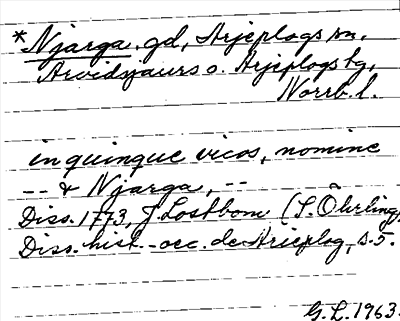 *Njarga. gd, Arjeplogs sn,
Arvidsjaurs o. Arjeplogs tg,
Norrb. l.
in quinque vicos, nomine
-- & Njarga, --
Diss. 1773, J. Lostbom (S. Öhrling,
Diss. hist.-oec. de Arieplog, s. 5.
G. L. 1963.